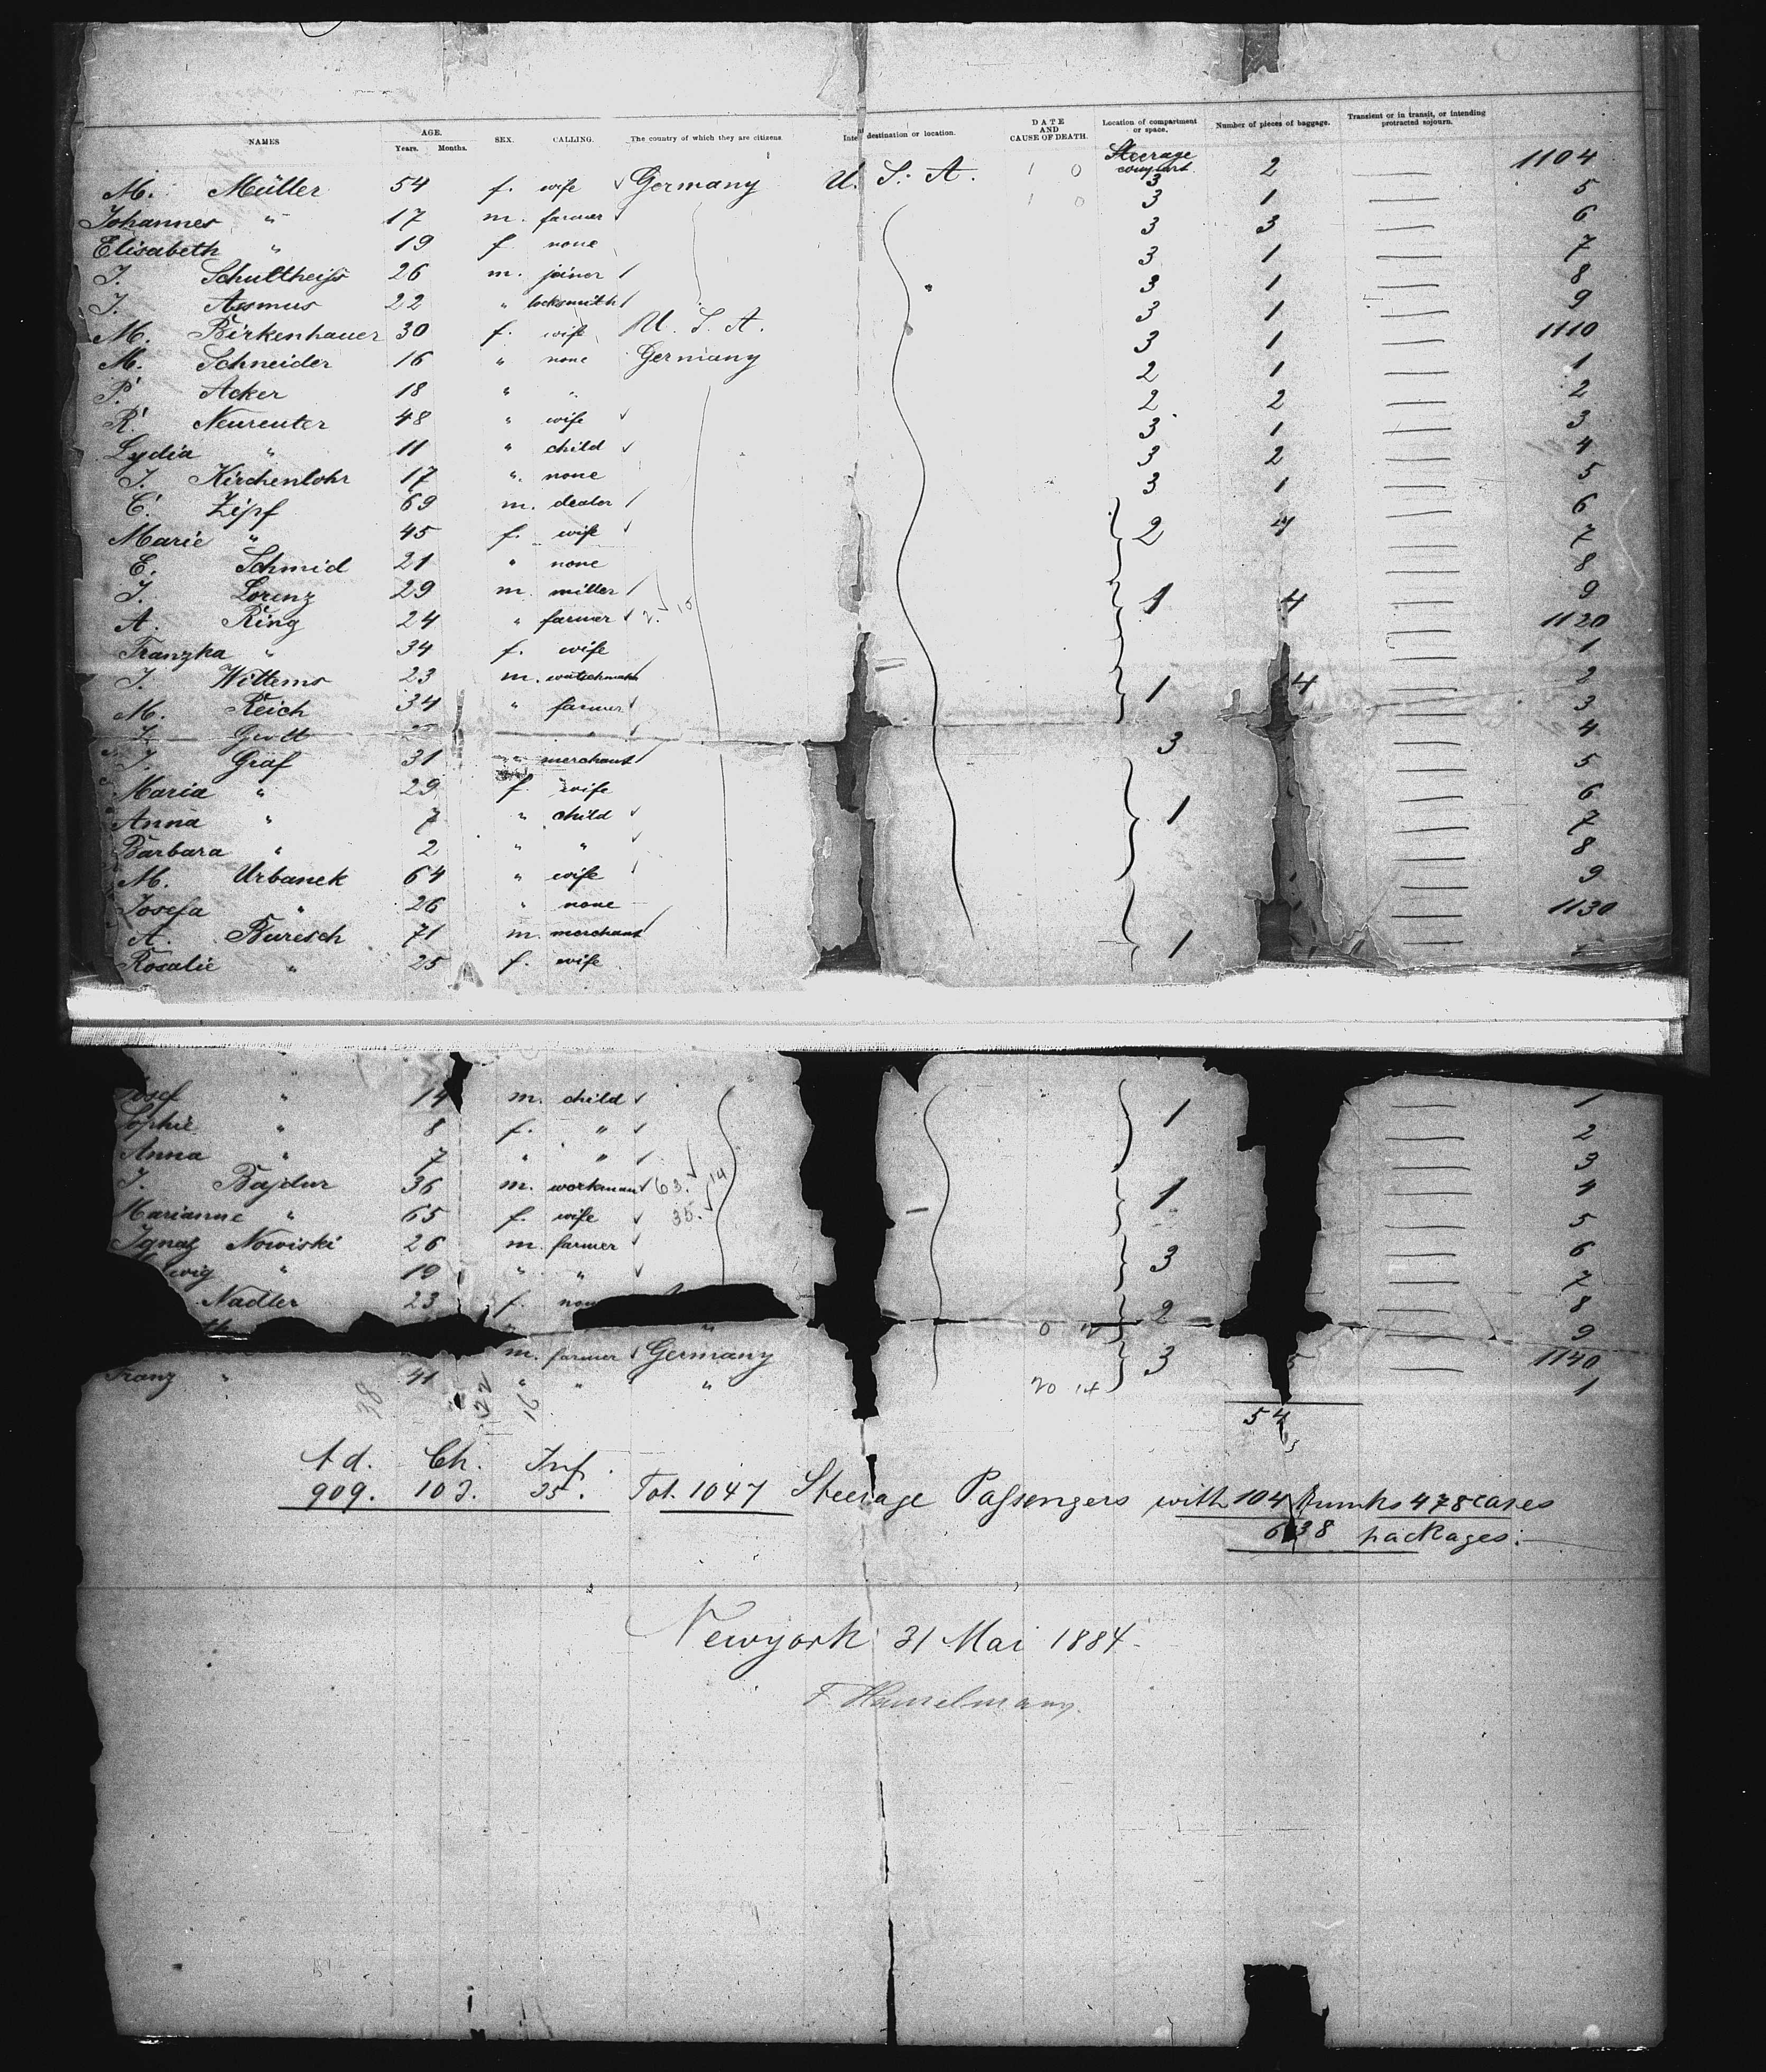 NAMES AGE. Years. Months. SEX. CALLING. The country of which they are citizens. destination or location. DATE AND CAUSE OF DEATH. Location of compartment or space. Number of pieces of baggage. Transient or in transit, or intending protracted sojourn.
M. Müller 54 f. wife Germany U. S. A. Steerage compart. 3 2 1104
Johannes " 17 m. farmer 3 1 5
Elisabeth " 19 f. none 3 3 6
J. Schultheiss 26 m. joiner 3 1 7
J. Assmus 22 " locksmith 3 1 8
M. Birkenhauer 30 f. wife U. S. A. 3 1 9
M. Schneider 16 " none Germany 3 1 1110
P. Acker 18 " " 2 1 1
R. Neureuter 48 " wife 2 2 2
Lydia " 11 " child 3 1 3
J. Kirchenlohr 17 " none 3 2 4
C. Zipf 69 m. dealer 3 1 5
Marie " 45 f. wife 2 4 6
E. Schmid 21 " none 7
J. Lorenz 29 m. miller 8
A. Ring 24 " farmer 1 4 9
Franzka " 34 f. wife 1120
J. Willems 23 m. watchman 1
M. Reich 34 " farmer 1 4 2
" 3
J. Gräf 31 " merchant 3 4
Maria " 29 f. wife 5
Anna " 7 " child 1 6
Barbara " 2 " " 7
M. Urbanek 64 " wife 8
Josefa " 26 " none 9
A. Buresch 71 m. merchant 1130
Rosalie " 25 f. wife 1
Josef " 14 m. child 1 1
Sophie " 8 f. " 2
Anna " 7 " " 3
J. Bajdur 36 m. workman 1 4
Marianne " 65 f. wife 5
Ignaz Nowiski 26 m. farmer 3 6
wig " 19 " " 7
Nadler 23 f. 2 8
" 9
m. farmer Germany 3 5 1140
Franz " 41 " " " 1
54
Ad. Ch. Inf.
909. 103. 35. Tot. 1047 Steerage Passengers with 104 trunks 478 cases
638 packages.
Newyork 31 Mai 1884